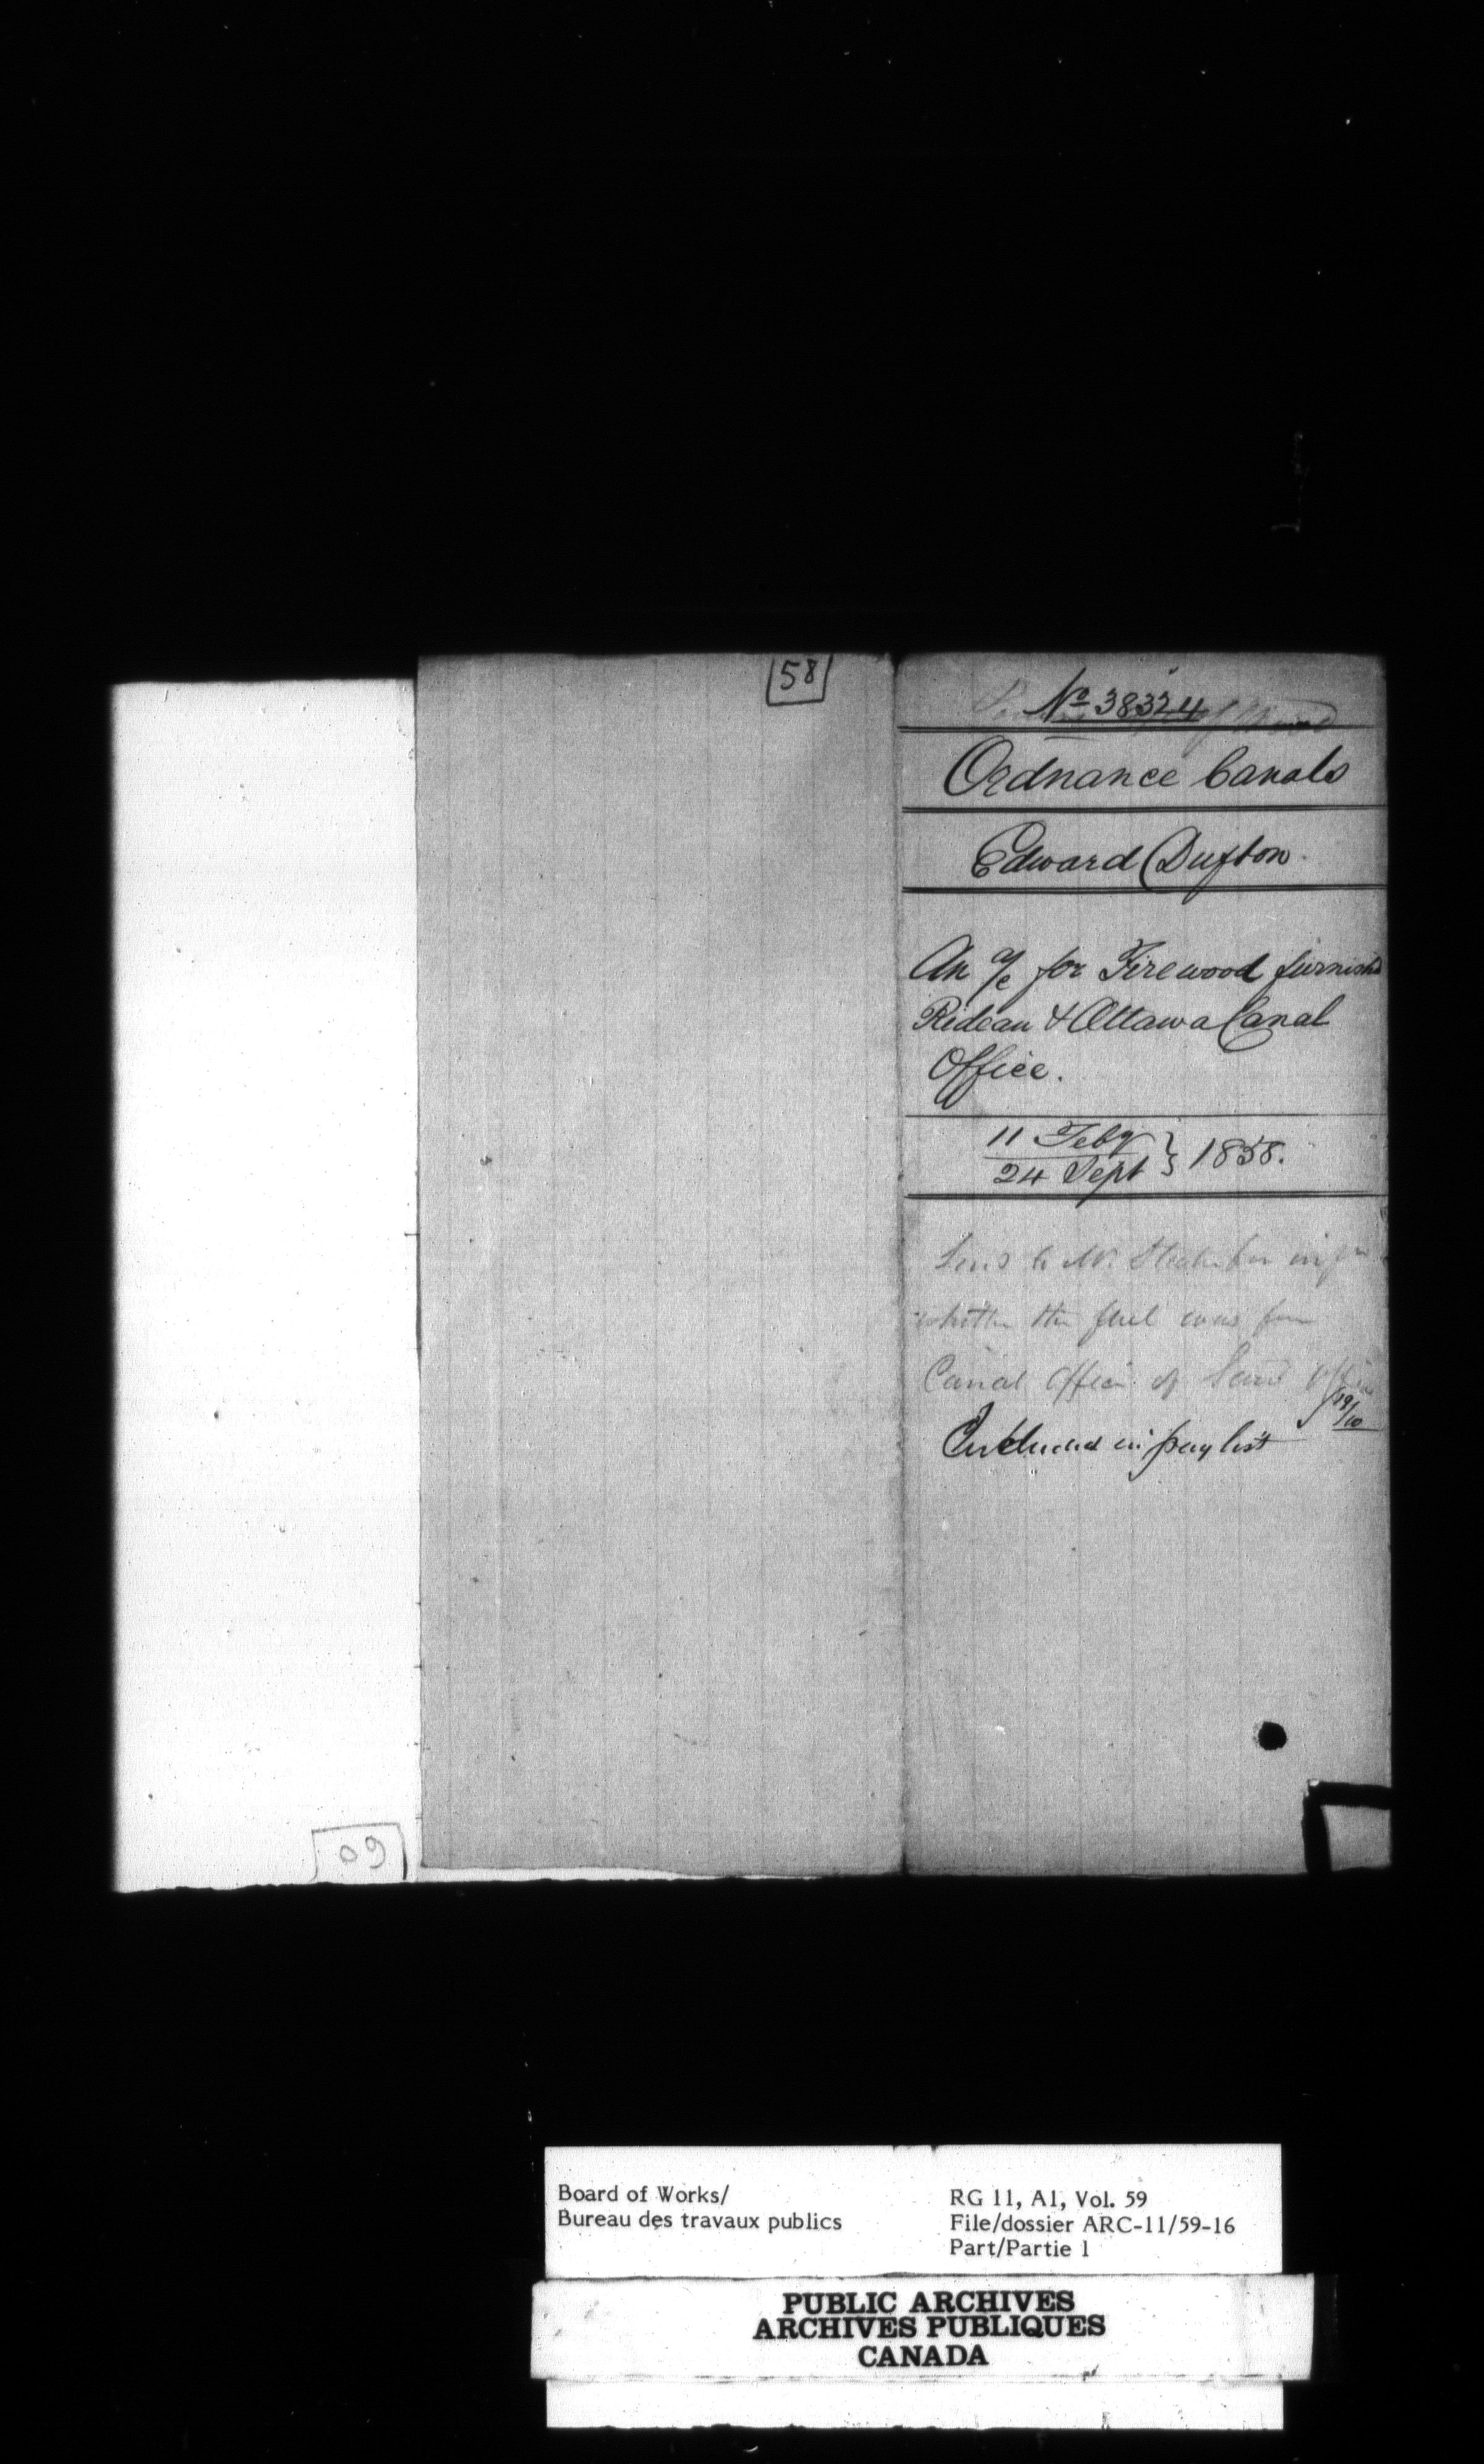 58
No 38324
Ordnance Canals
Edward Dufton.
An a/c for Firewood furnish'd
Rideau & Ottawa Canal
Office.
11 Feby
24 Sept } 1858.
whether the fuel was for
Canal Office or Land Office
19/10
Included in pay list
60
Board of Works/
Bureau des travaux publics
RG 11, A1, Vol. 59
File/dossier ARC-11/59-16
Part/Partie 1
PUBLIC ARCHIVES
ARCHIVES PUBLIQUES
CANADA